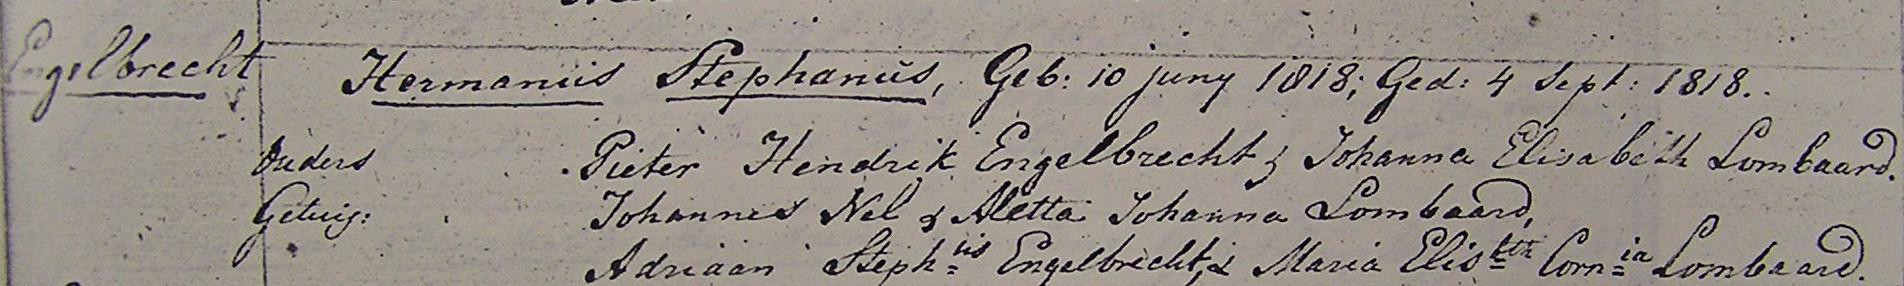 Engelbrecht Hermanus Stephanus, Geb: 10 juny 1818; Ged: 4 Sept: 1818..
Ouders Pieter Hendrik Engelbrecht & Johanna Elisabeth Lombaard.
Getuig: Johannes Nel & Aletta Johanna Lombaard,
Adriaan Steph:us Engelbrecht, & Maria Elis:bth Corn:ia Lombaard.